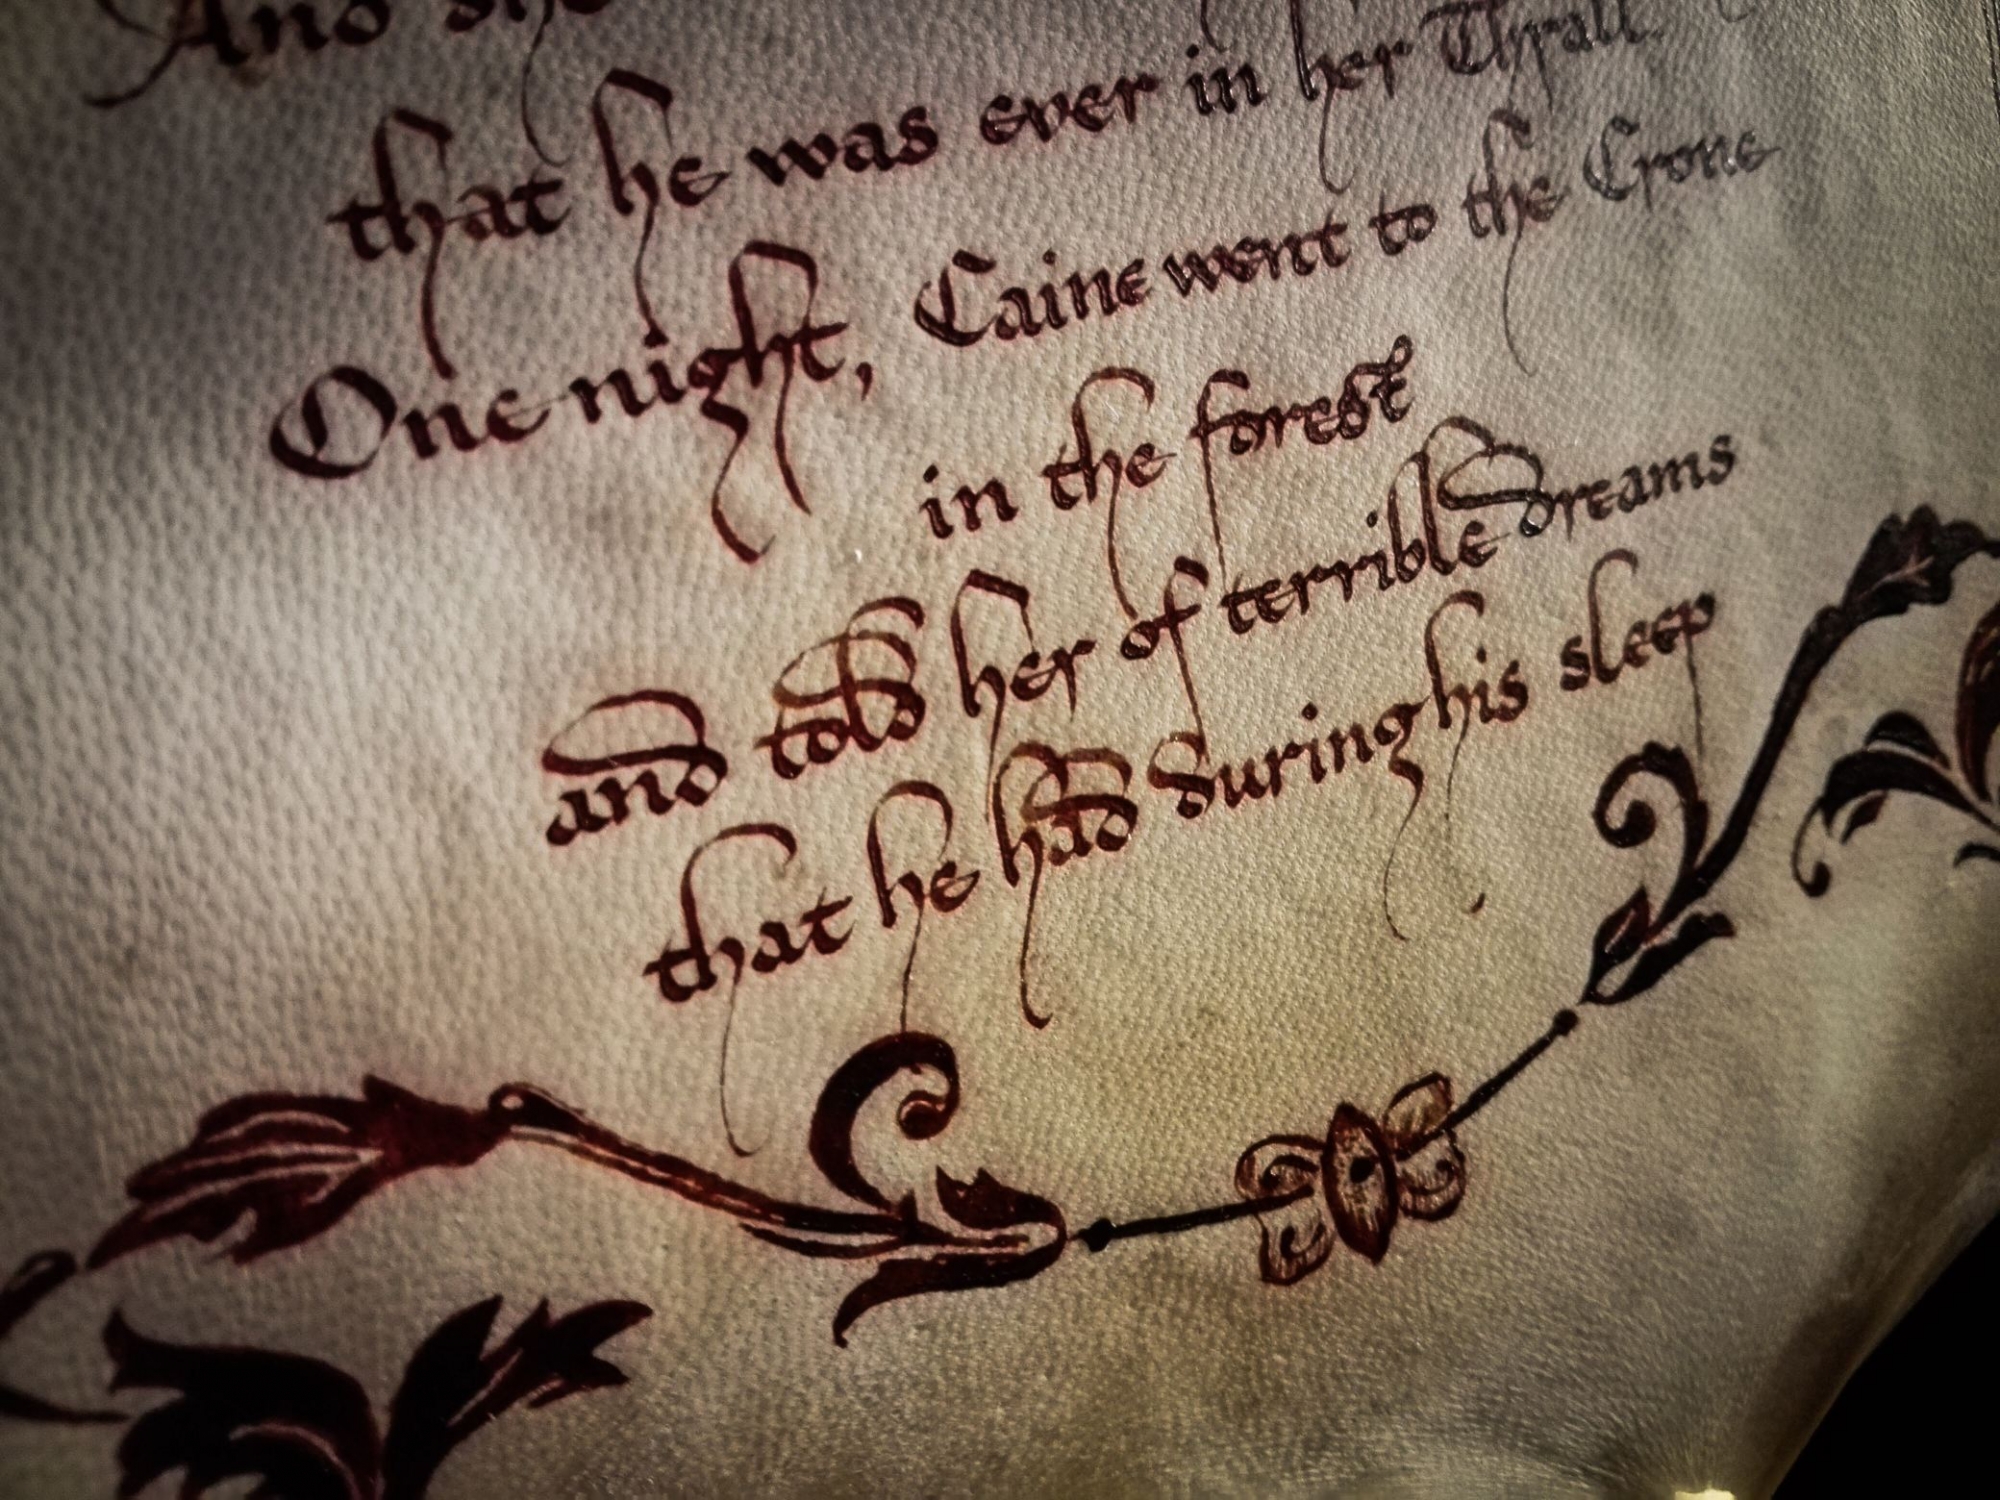 And she
that he was ever in her Thrall.
One night, Caine went to the Crone
in the forest
and told her of terrible dreams
that he had during his sleep